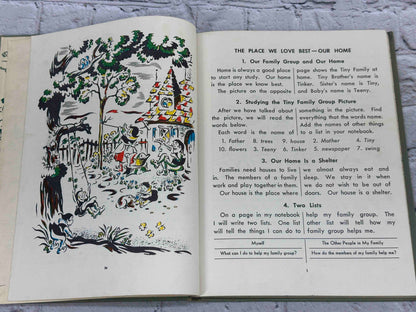 THE PLACE WE LOVE BEST—OUR HOME
1. Our Family Group and Our Home
Home is always a good place
to start any study. Our home
is the place we know best.
The picture on the opposite
page shows the Tiny Family
at home. Tiny Brother's name is
Tinker. Sister's name is Tiny,
and Baby's name is Teeny.
2. Studying the Tiny Family Group Picture
After we have talked about
the picture, we will read the
words below.
Each word is the name of
something in the picture. Find
everything that the words name.
Add the names of other things
to a list in your notebook.
1. Father 8. trees 9. house 2. Mother 4. Tiny
10. flowers 3. Teeny 6. Tinker 5. newspaper 7. swing
3. Our Home Is a Shelter
Families need houses to live
in. The members of a family
work and play together in them.
Our house is the place where
we almost always eat and
sleep. We stay in it when
we do not wish to be out of
doors. Our house is a shelter.
4. Two Lists
On a page in my notebook
I will write two lists. One list
will tell the things I can do to
help my family group. The
other list will tell how my
family group helps me.
Myself
The Other People in My Family
What can I do to help my family group?
How do the members of my family help me?
1